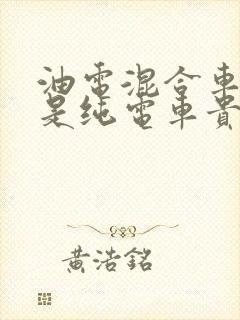 油電混合車
是純電車貴
黃浩銘